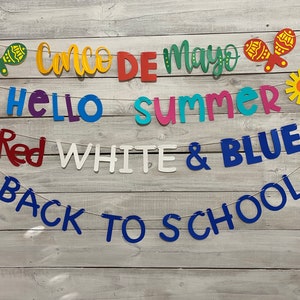 Cinco DE Mayo
HELLO SUMMER
Red WHITE & BLUE
BACK TO SCHOOL